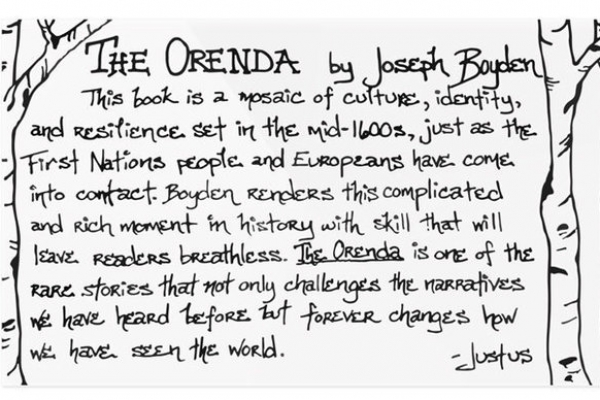 THE ORENDA by Joseph Boyden
This book is a mosaic of culture, identity,
and resilience set in the mid-1600s, just as the
First Nations people and Europeans have come
into contact. Boyden renders this complicated
and rich moment in history with skill that will
leave readers breathless. The Orenda is one of the
rare stories that not only challenges the narratives
we have heard before but forever changes how
we have seen the world.
-Justus